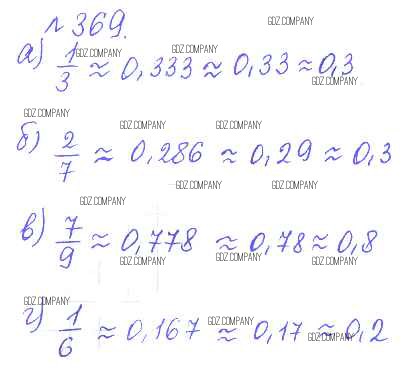 GDZ.COMPANY
№ 369.
GDZ.COMPANY GDZ.COMPANY
а) 1/3 ≈ 0,333 ≈ 0,33 ≈ 0,3
GDZ.COMPANY
GDZ.COMPANY
GDZ.COMPANY GDZ.COMPANY
б) 2/7 ≈ 0,286 ≈ 0,29 ≈ 0,3
GDZ.COMPANY GDZ.COMPANY
GDZ.COMPANY
в) 7/9 ≈ 0,778 ≈ 0,78 ≈ 0,8
GDZ.COMPANY GDZ.COMPANY GDZ.COMPANY
GDZ.COMPANY
г) 1/6 ≈ 0,167 ≈ 0,17 ≈ 0,2
GDZ.COMPANY GDZ.COMPANY